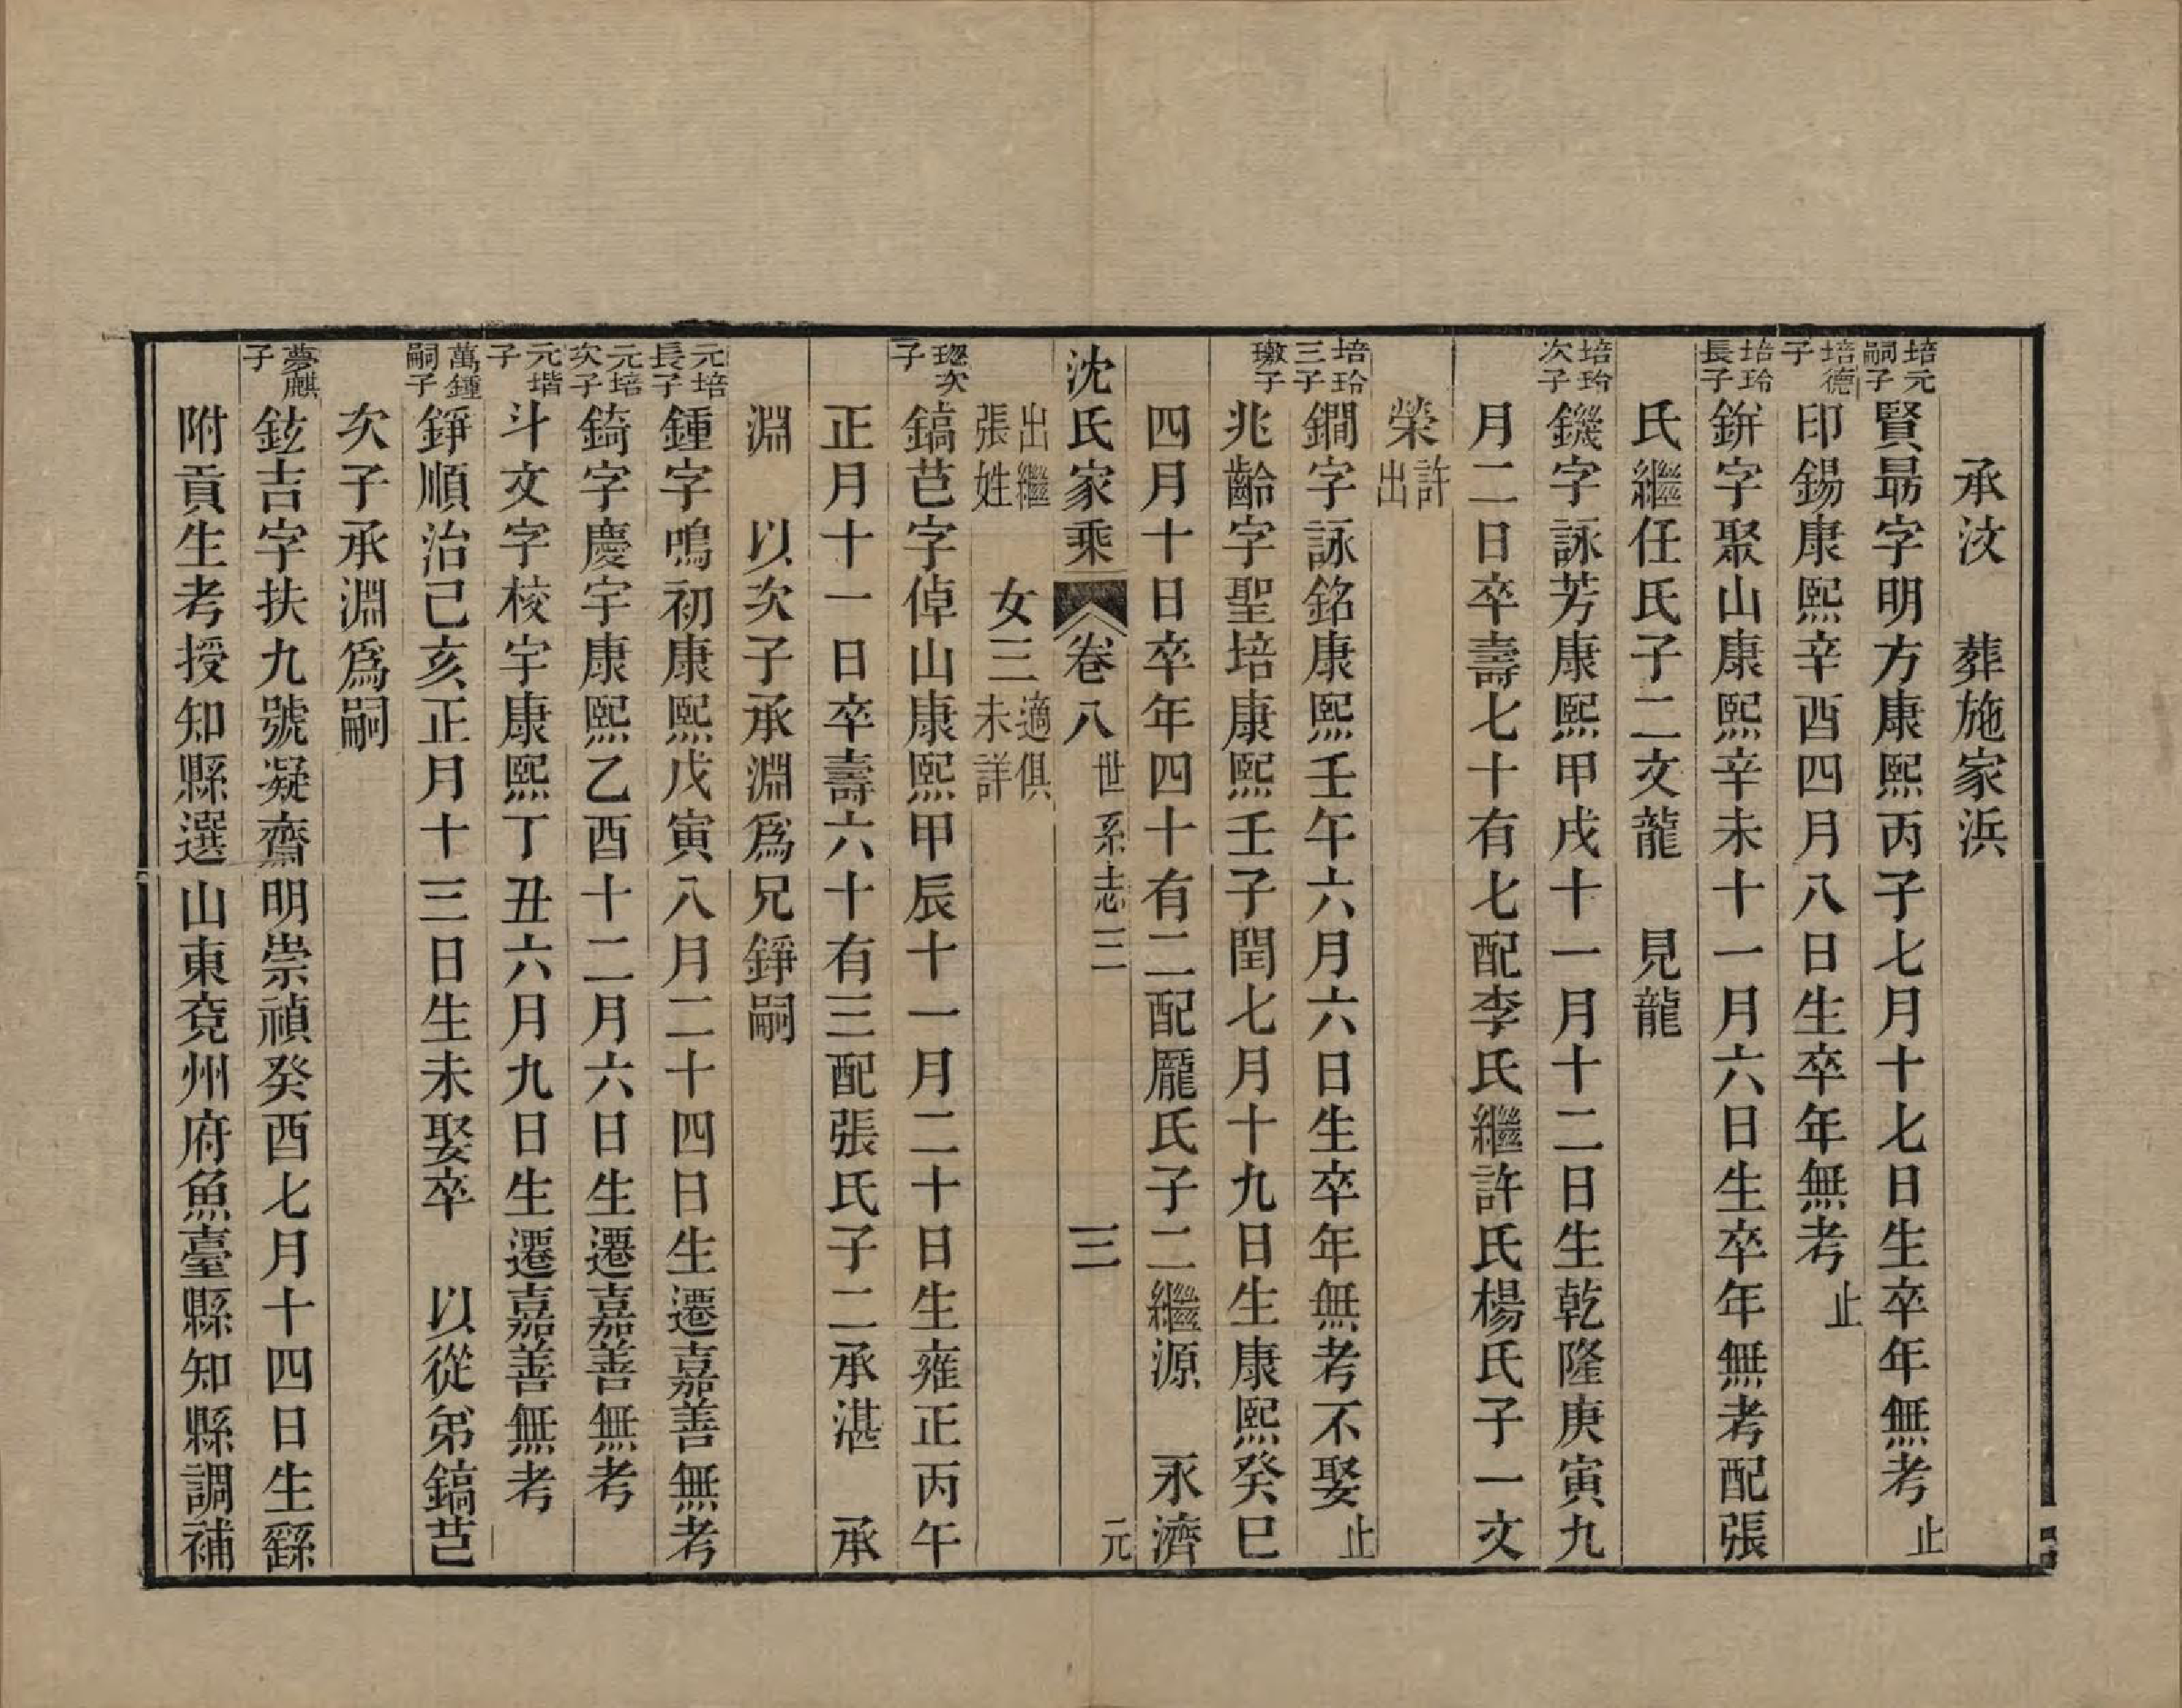 承汶　葬施家浜
培元嗣子　賢最字明方康熙丙子七月十七日生卒年無考止
培德子　印錫康熙辛酉四月八日生卒年無考止
培玲長子　鉼字聚山康熙辛未十一月六日生卒年無考配張
氏繼任氏子二文龍　見龍
培玲次子　鐖字詠芳康熙甲戌十一月十二日生乾隆庚寅九
月二日卒壽七十有七配李氏繼許氏楊氏子一文
榮許出
培玲三子　鐧字詠銘康熙壬午六月六日生卒年無考不娶止
璥子　兆齡字聖培康熙壬子閏七月十九日生康熙癸巳
四月十日卒年四十有二配龎氏子二繼源　永濟
沈氏家乘　卷八　世系志三　三　元
出繼張姓　女三適俱未詳
璁次子　鎬芑字倬山康熙甲辰十一月二十日生雍正丙午
正月十一日卒壽六十有三配張氏子二承湛　承
淵　以次子承淵爲兄錚嗣
元培長子　鍾字鳴初康熙戊寅八月二十四日生遷嘉善無考
元培次子　錡字慶宇康熙乙酉十二月六日生遷嘉善無考
元堦子　斗文字校宇康熙丁丑六月九日生遷嘉善無考
萬鍾嗣子　錚順治己亥正月十三日生未娶卒　以從弟鎬芑
次子承淵爲嗣
夢麒子　鉉吉字扶九號凝齋明崇禎癸酉七月十四日生繇
附貢生考授知縣選山東兗州府魚臺縣知縣調補